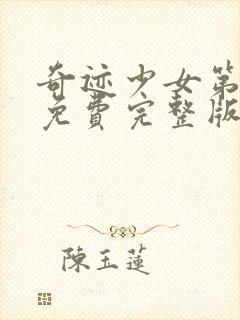 奇迹少女第
免費完整版
陳玉蓮